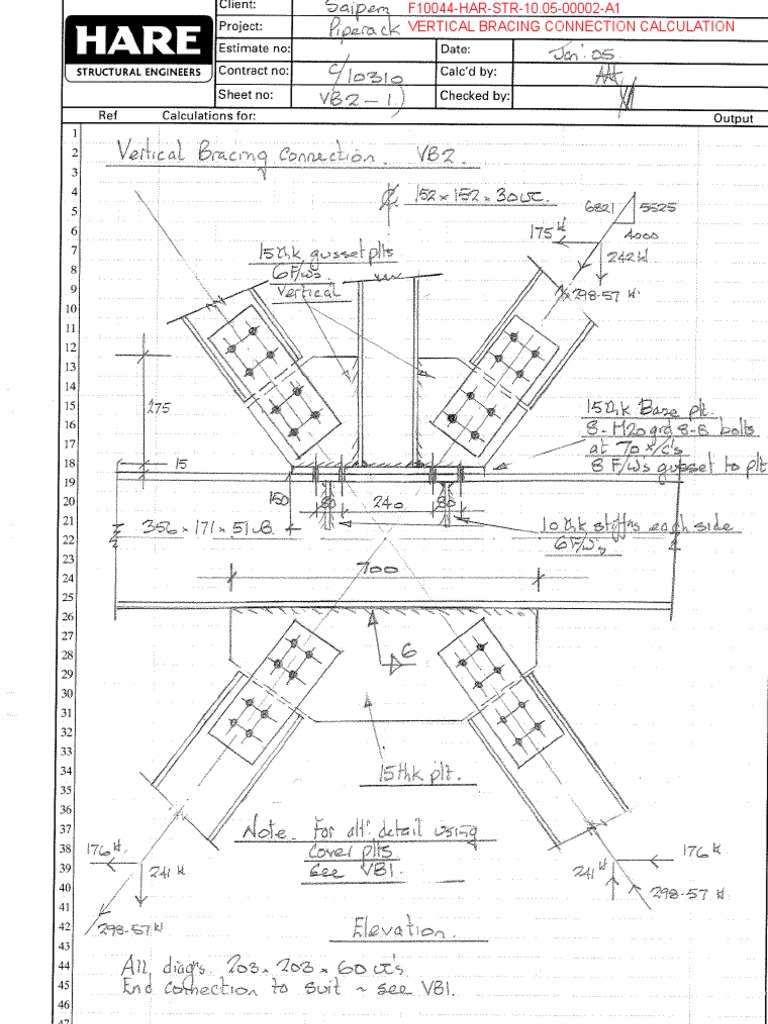 HARE
STRUCTURAL ENGINEERS
Client: Saipem F10044-HAR-STR-10.05-00002-A1
Project: Piperack VERTICAL BRACING CONNECTION CALCULATION
Estimate no: Date: Jan' 05.
Contract no: C/10310 Calc'd by:
Sheet no: VB2-1) Checked by:
Ref Calculations for: Output
1
2
3
4
5
6
7
8
9
10
11
12
13
14
15
16
17
18
19
20
21
22
23
24
25
26
27
28
29
30
31
32
33
34
35
36
37
38
39
40
41
42
43
44
45
46
47
Vertical Bracing Connection. VB2.
152 x 152 x 30 uc.
6821 5525
4000
175 kN
242 kN
298.57 kN
15 thk gusset plts
6 F/Ws.
Vertical
275
15
15 thk Base plt.
8-M20 grd 8-8 bolts
at 70 x/c's
8 F/W's gusset to plt
150 80 240 80
356 x 171 x 51 uB.
10 thk stiffns each side
6 F/Ws
700
6
15 thk plt.
Note. For alt' detail using
cover plts
see VB1.
176 kN
241 kN
298.57 kN
176 kN
241 kN
298.57 kN
Elevation.
All diag's. 203 x 203 x 60 uc's
End connection to suit ~ see VB1.